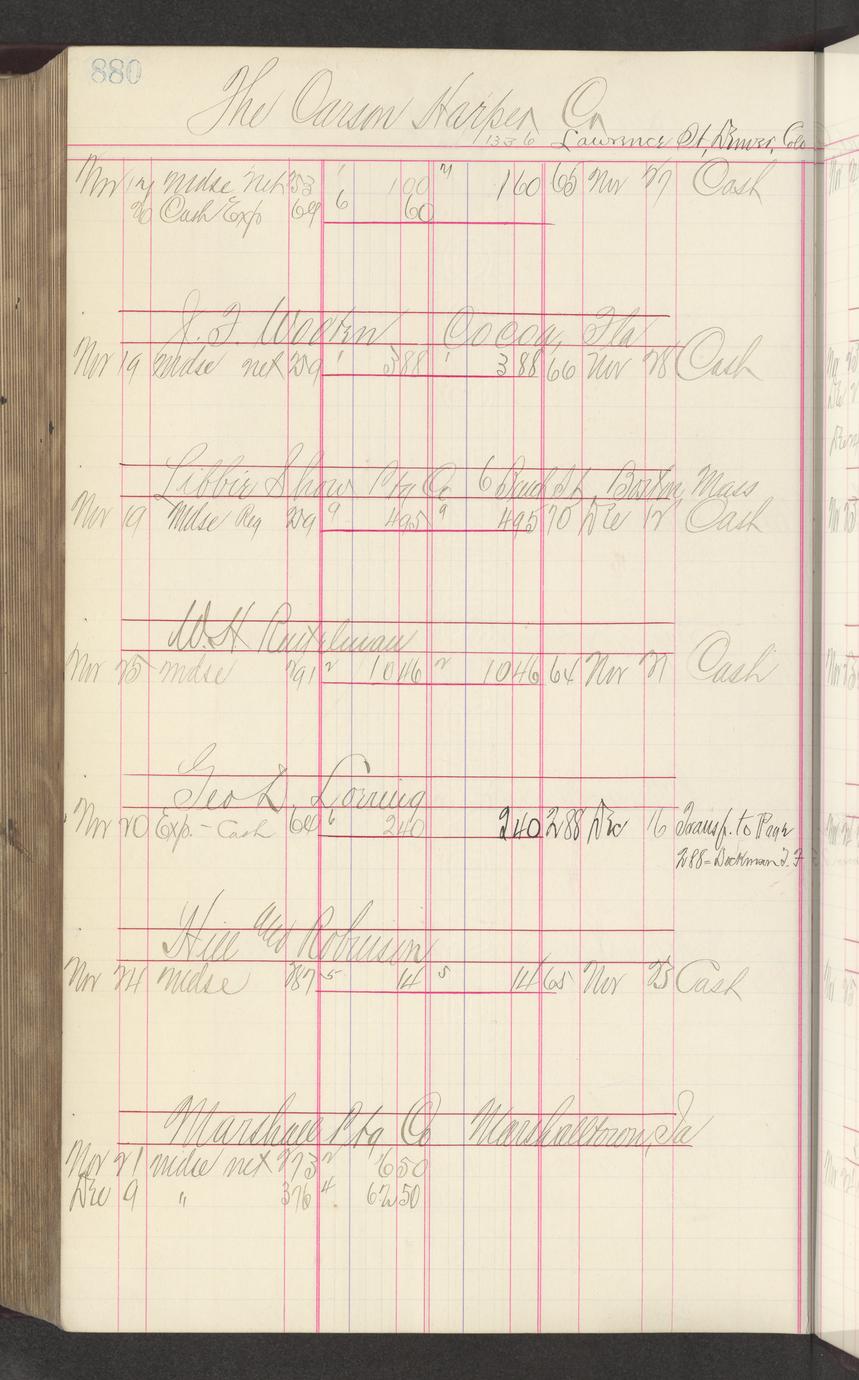 880
The Carson Harper Co
1336 Lawrence St, Denver, Colo
Nov 17 Mdse net 253 1 100 7 160 65 Nov 27 Cash
20 Cash Exp 64 6 60
J. F. Wooten Cocoa, Fla
Nov 19 Mdse net 259 1 388 1 388 66 Nov 28 Cash
Libbie Show Ptg Co 6 Beach St, Boston, Mass
Nov 19 Mdse Reg 259 9 495 9 495 70 Dec 12 Cash
W. H.
Nov 25 mdse 291 2 1046 2 1046 64 Nov 21 Cash
Geo L. Lorring
Nov 20 Exp. - Cash 64 6 240 240 288 Dec 16 Transf. to Page
288 = Dockman J. F
Hill and Robinson
Nov 24 Mdse 287 5 14 5 14 65 Nov 25 Cash
Marshall Ptg Co Marshalltown, Ia
Nov 21 mdse net 273 2 650
Dec 9 " 376 4 6250